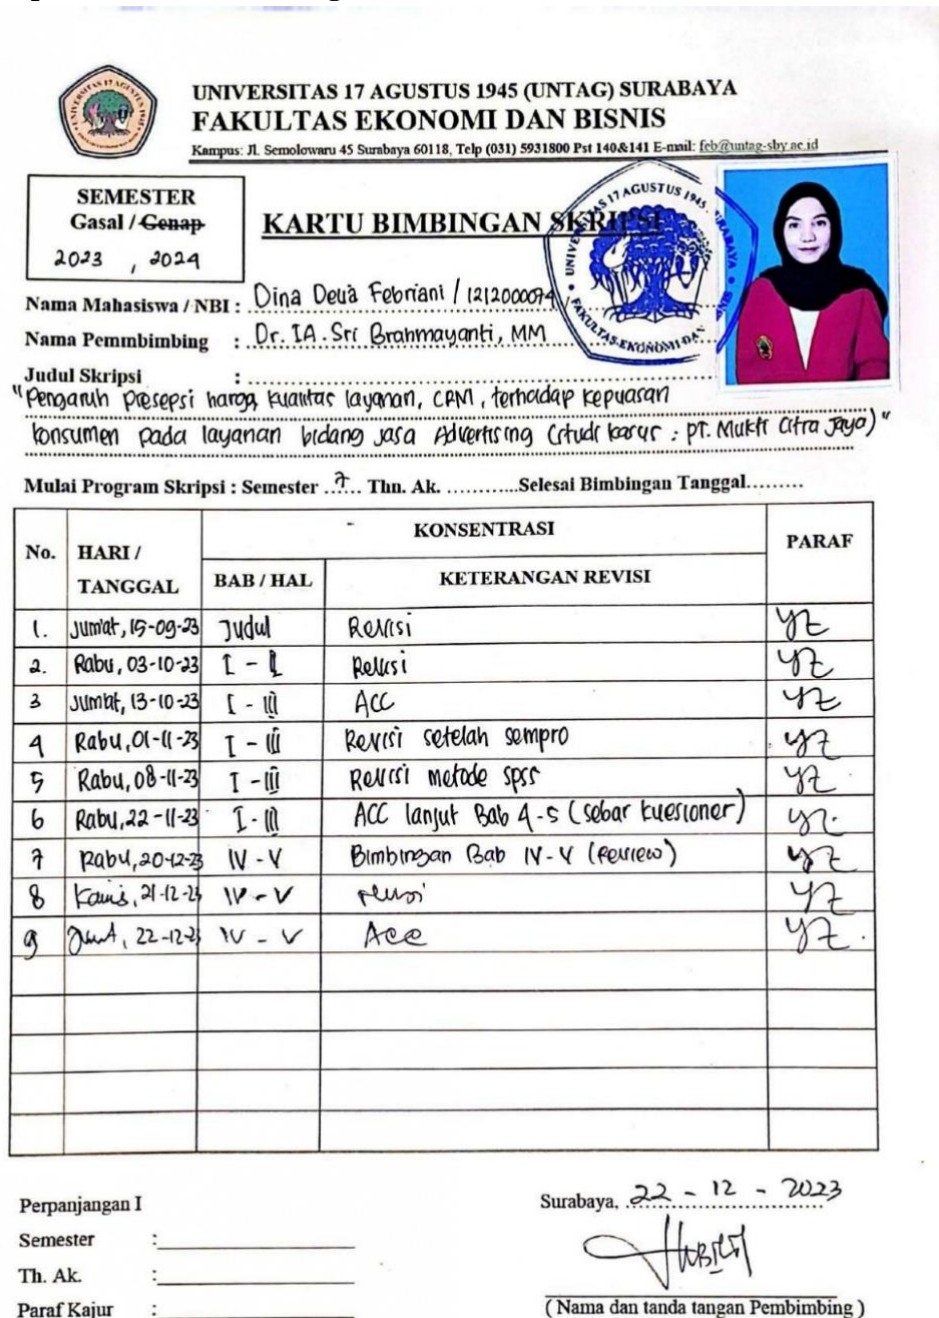 UNIVERSITAS 17 AGUSTUS 1945 (UNTAG) SURABAYA
FAKULTAS EKONOMI DAN BISNIS
Kampus: Jl. Semolowaru 45 Surabaya 60118, Telp (031) 5931800 Pst 140&141 E-mail: feb@untag-sby.ac.id
SEMESTER
Gasal / Genap
2023 , 2024
KARTU BIMBINGAN SKRIPSI
Nama Mahasiswa / NBI : Dina Dewa Febriani / 1212000074
Nama Pemmbimbing : Dr. IA. Sri Brahmayanti, MM
Judul Skripsi :
"Pengaruh presepsi harga, kualitas layanan, CRM, terhadap kepuasan
konsumen pada layanan bidang jasa Advertising (studi kasus : PT. Mukti Citra Jaya)"
Mulai Program Skripsi : Semester 7 Thn. Ak. ............Selesai Bimbingan Tanggal.........
No. HARI / TANGGAL KONSENTRASI PARAF
BAB / HAL KETERANGAN REVISI
1. Jum'at, 15-09-23 Judul Revisi
2. Rabu, 03-10-23 I - II Revisi
3 Jum'at, 13-10-23 I - III ACC
4 Rabu, 01-11-23 I - III Revisi setelah sempro
5 Rabu, 08-11-23 I - III Revisi metode spss
6 Rabu, 22-11-23 I - III ACC lanjut Bab 4-5 (sebar kuesioner)
7 Rabu, 20-12-23 IV - V Bimbingan Bab IV-V (Review)
8 Kamis, 21-12-23 IV - V revisi
9 Jum'at, 22-12-23 IV - V Acc
Perpanjangan I
Semester :
Th. Ak. :
Paraf Kajur :
Surabaya, 22 - 12 - 2023
( Nama dan tanda tangan Pembimbing )